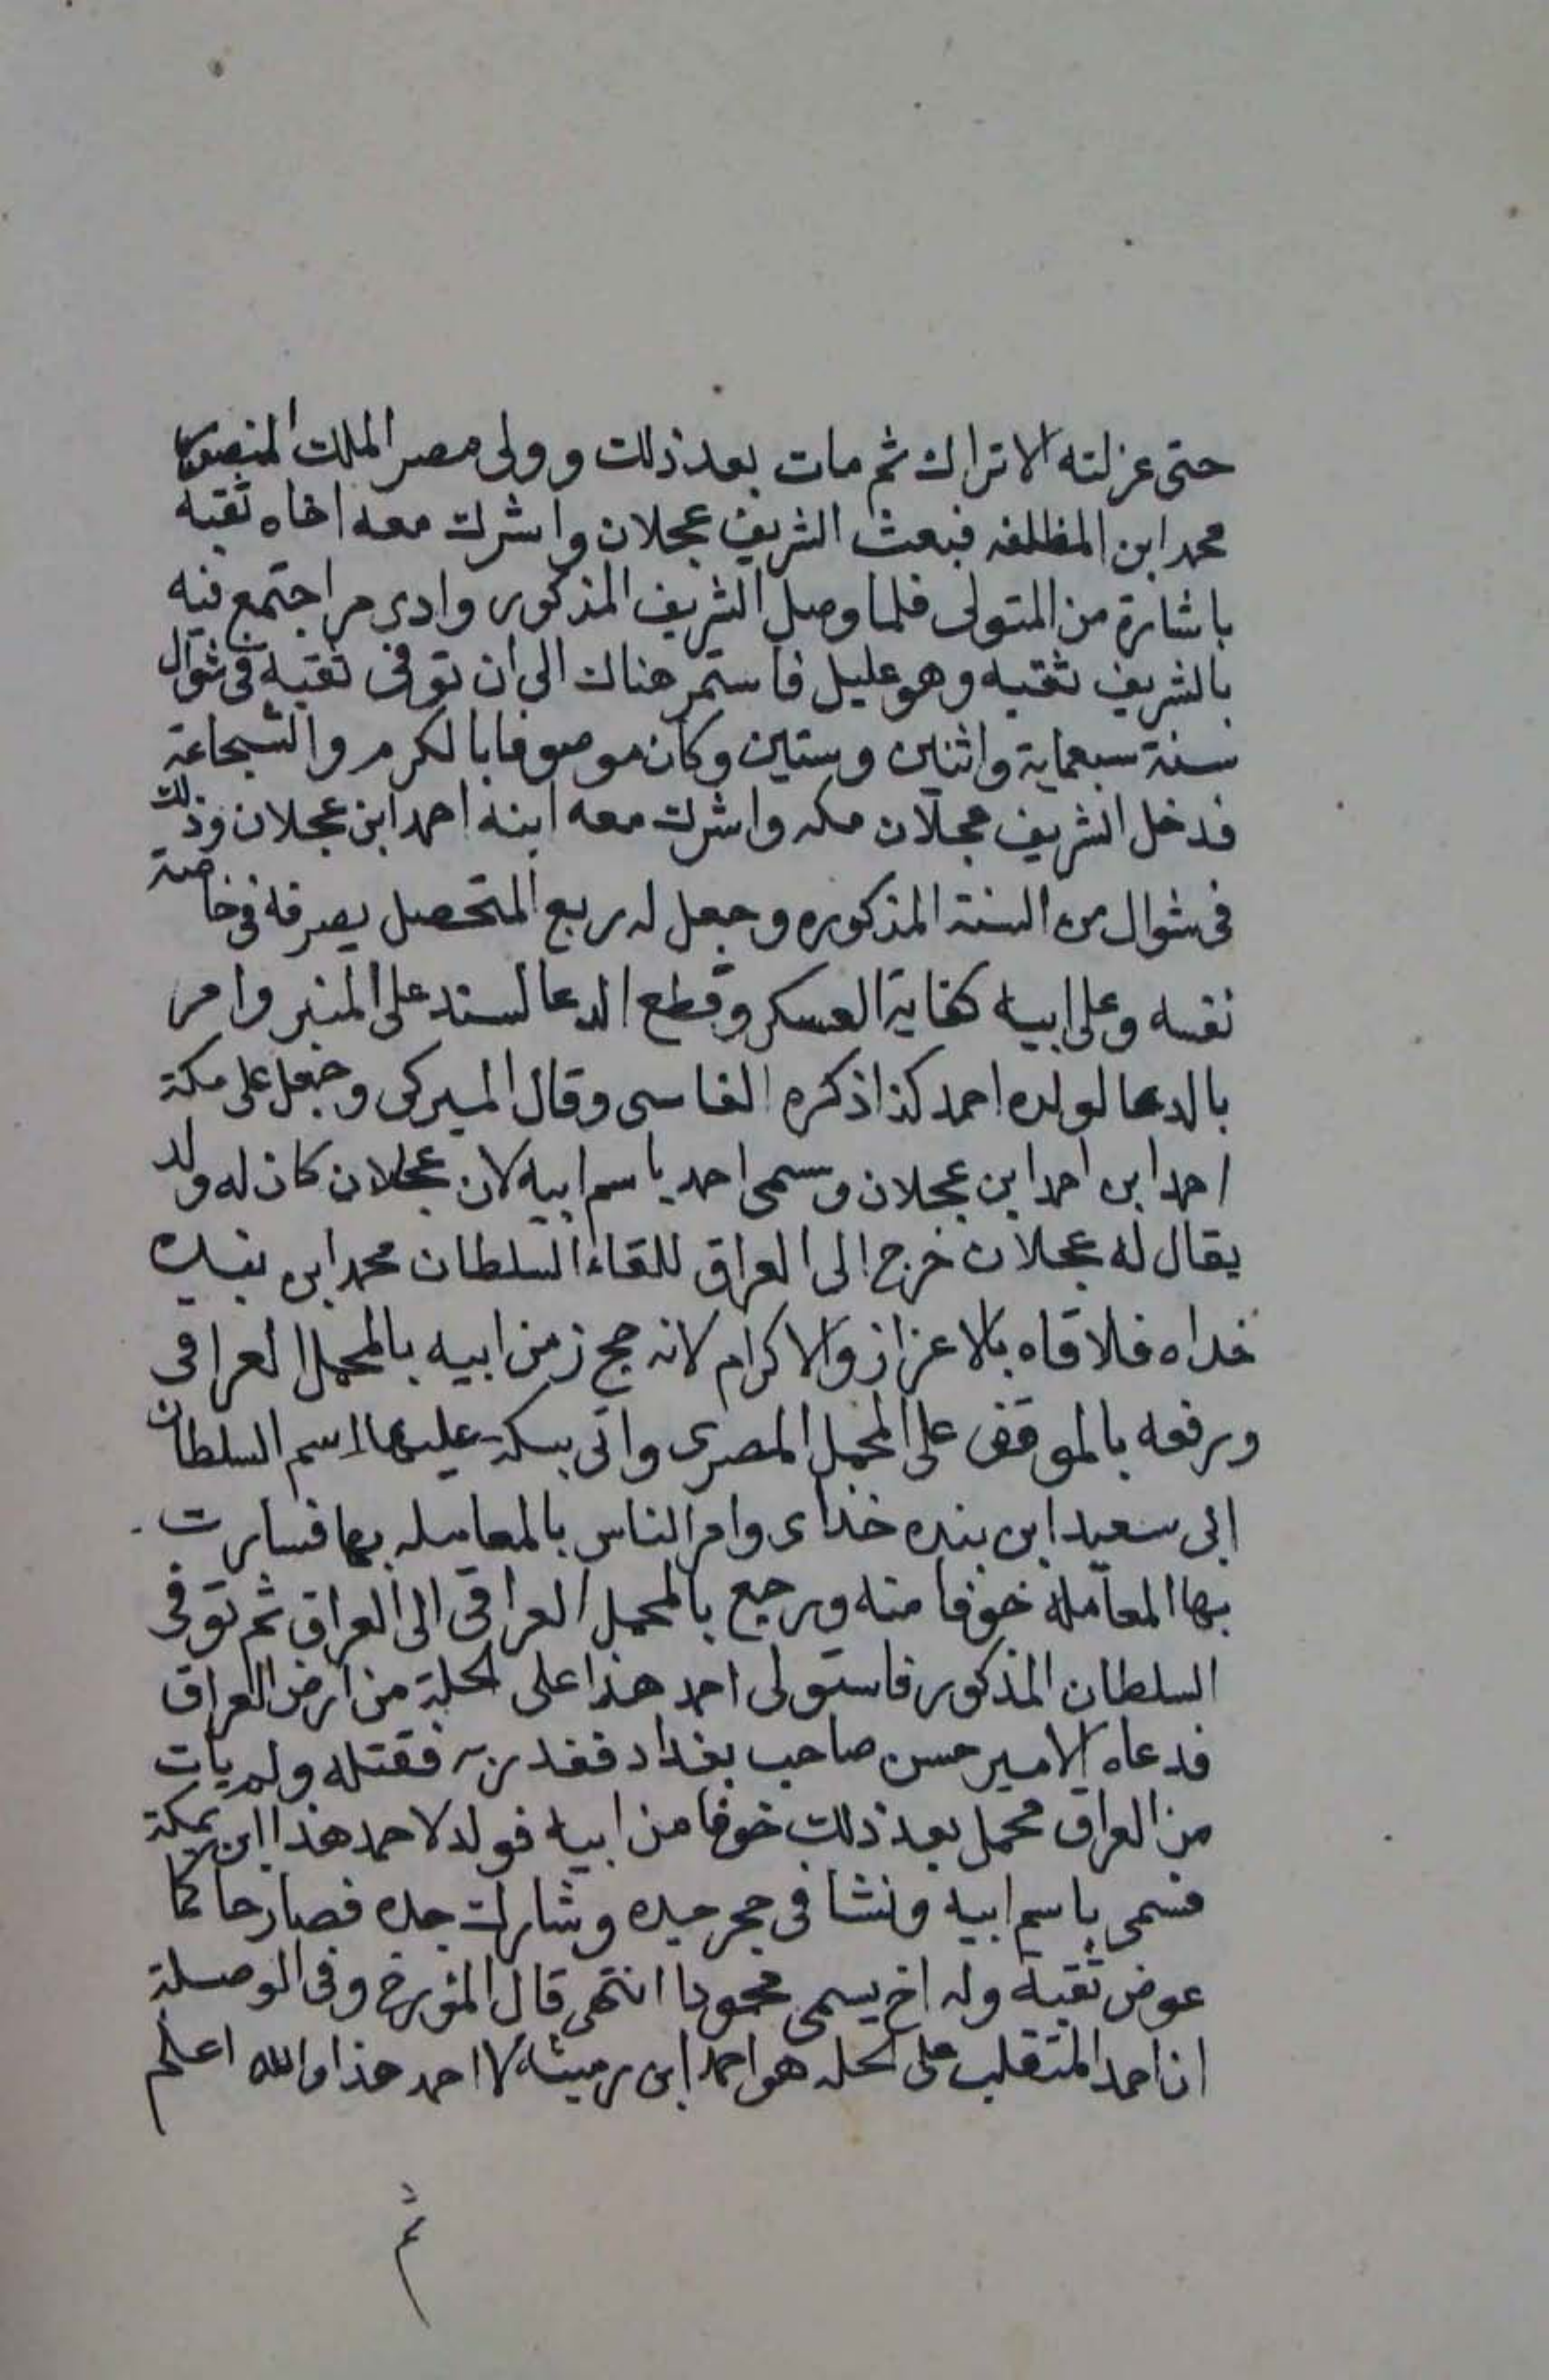 حتى عزلته الاتراك ثم مات بعد ذلك وولى مصر الملك المنصور
محمد ابن المظلفر فبعث الشريف عجلان واشرك معه اخاه ثقبه
باشارة من المتولى فلما وصل الشريف المذكور وادى مر اجتمع فيه
بالشريف ثقبه وهو عليل فاستمر هناك الى ان توفى ثقبه فى شوال
سنة سبعماية واثنين وستين وكان موصوفا بالكرم والشجاعة
فدخل الشريف عجلان مكه واشرك معه ابنه احمد ابن عجلان وذلك
فى شوال من السنة المذكوره وجعل له ربع المتحصل يصرفه فى خاصة
نفسه وعلى ابيه كفاية العسكر وقطع الدعا لسند على المنبر وامر
بالدعا لولده احمد كذا ذكره الفاسى وقال الميركى وجعل على مكة
احمد ابن احمد ابن عجلان وسمى احمد باسم ابيه لان عجلان كان له ولد
يقال له عجلان خرج الى العراق للقاء السلطان محمد ابن بنده
خداه فلاقاه بالاعزاز والاكرام لانه حج زمن ابيه بالمحمل العراقى
ورفعه بالموقف على المحمل المصرى واتى بسكة عليها اسم السلطان
ابى سعيد ابن بنده خداى وامر الناس بالمعامله بها فسارت
بها المعامله خوفا منه ورجع بالمحمل العراقى الى العراق ثم توفى
السلطان المذكور فاستولى احمد هذا على الحلة من ارض العراق
فدعاه الامير حسن صاحب بغداد فغدر به فقتله ولم يات
من العراق محمل بعد ذلك خوفا من ابيه فولد لاحمد هذا ابن بمكة
فسمى باسم ابيه ونشا فى حجر جده وشارك جده فصار حاكما
عوض ثقبة وله اخ يسمى محمودا انتهى قال المؤرخ وفى الوصلة
ان احمد المتغلب على الحله هو احمد ابن رميثه لا احمد هذا والله اعلم
ثم